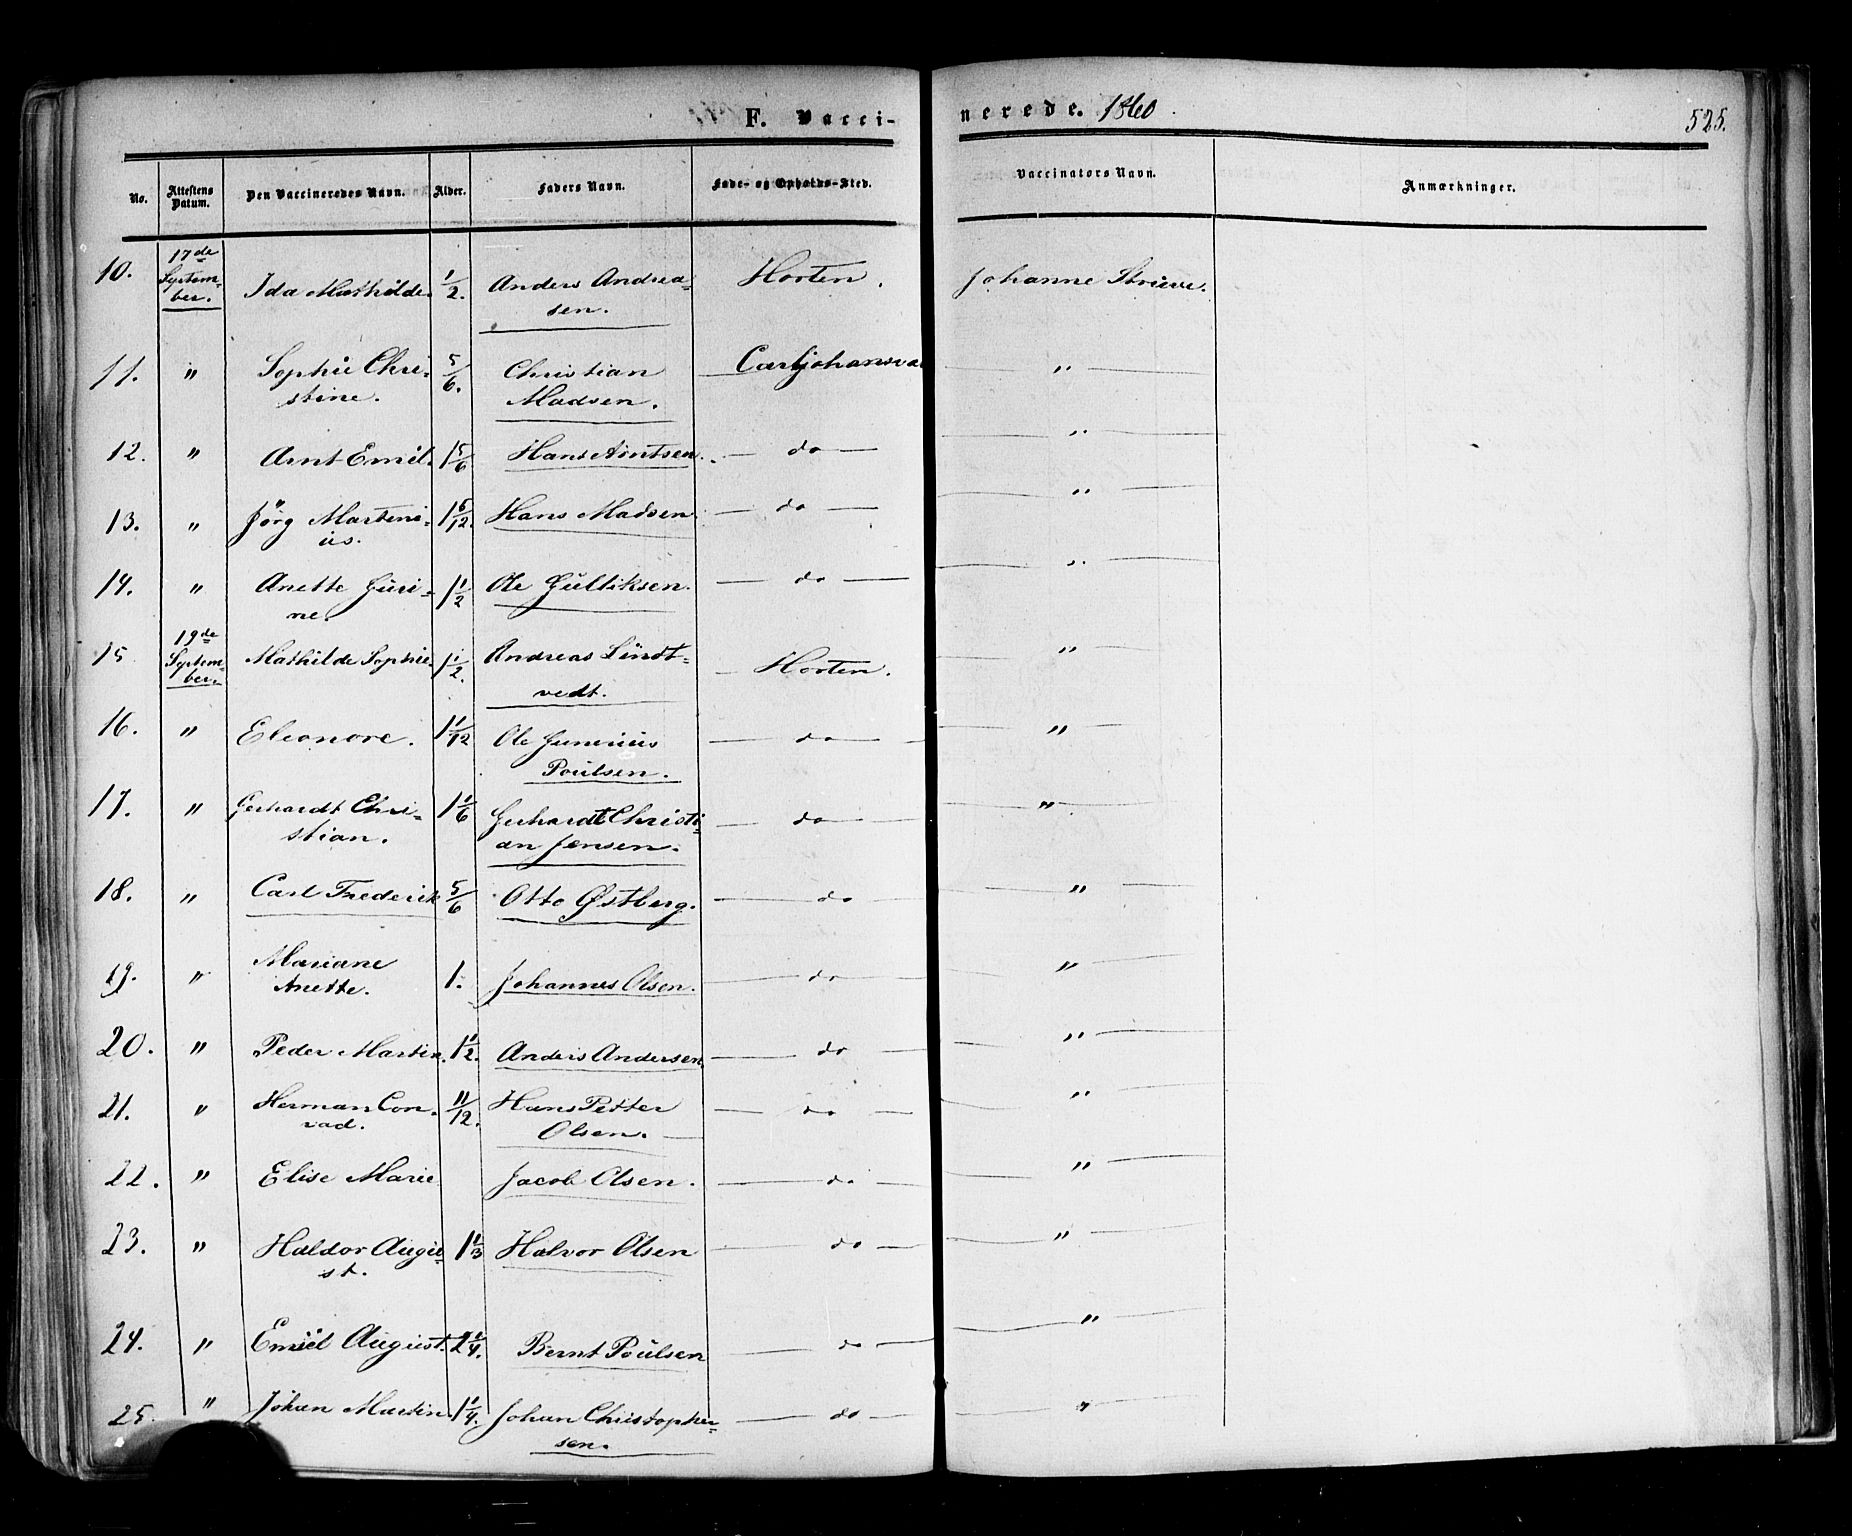 F. Vacci-nerede. 1860.
525.
No. Attestens Datum. Den Vaccineredes Navn. Alder. Faders Navn. Føde- og Opholds-Sted. Vaccinators Navn. Anmærkninger.
10. 17de Septem-ber. Ida Mathilde 1/2. Anders Andrea-sen. Horten. Johanne
11. " Sophie Chri-stine. 5/6. Christian Madsen. Carljohansvæ "
12. " Arnt Emil. 1 5/6 Hans Arntsen. do "
13. " Jörg Marteni-us. Hans Madsen. do "
14. " Anette Guri-ne. 1 1/2 Ole Gulliksen. do "
15 19de Septem-ber. Mathilde Sophie. 1 1/2. Andreas Lindt-vedt. Horten. "
16. " Eleonore. 1 1/12 Ole Poulsen. do "
17. " Gerhardt Chri-stian. 1 1/6 Gerhardt Christi-an Jensen. do "
18. " Carl Frederik 5/6 Otto Østberg. do "
19. " Mariane Anette. 1. Johannes Olsen. do "
20. " Peder Martin. 1 1/2. Anders Andersen. do "
21. " Herman Con-rad. 11/12. Hans Petter Olsen. do "
22. " Elise Marie Jacob Olsen. do "
23. " Haldor Augu-st. 1 1/3 Halvor Olsen do "
24. " Emil August. 2 1/4. Bernt Poulsen do "
25. " Johan Martin. 1 1/4. Johan Christopher-sen. do "